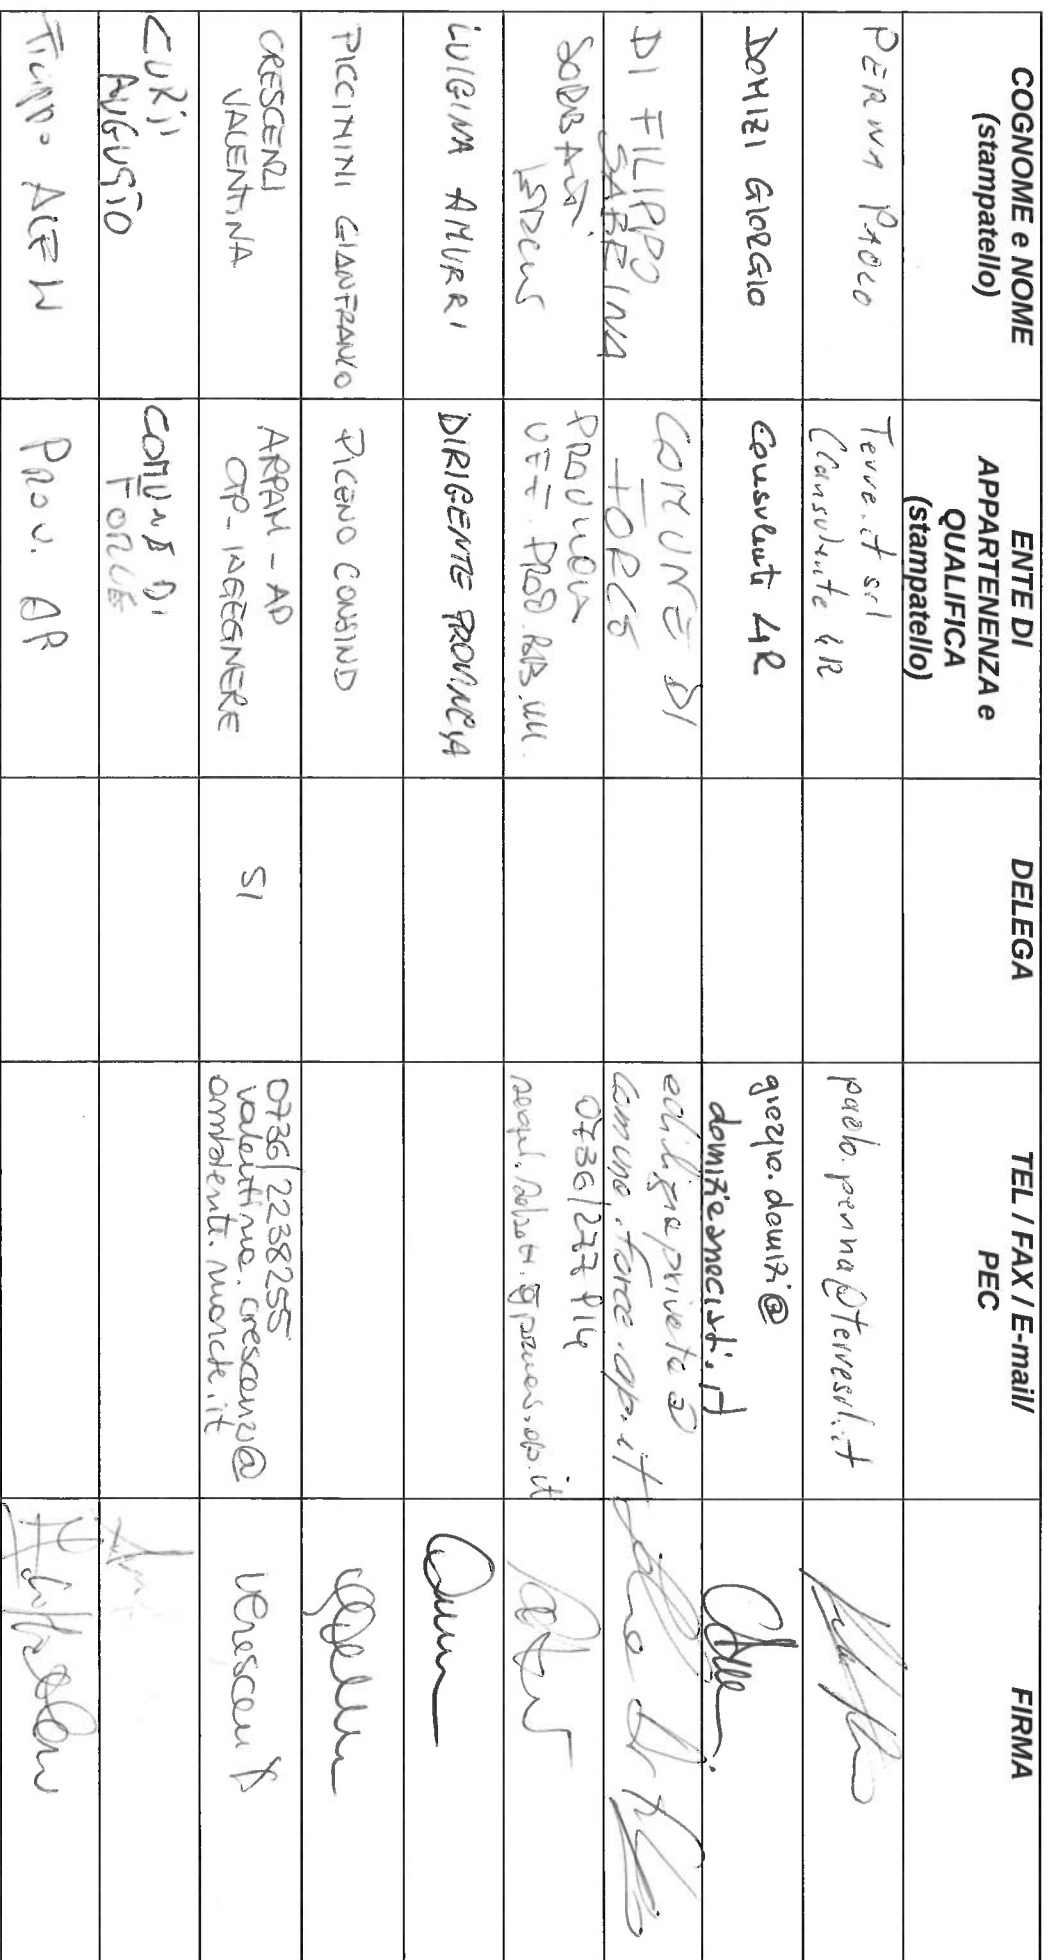 COGNOME e NOME
(stampatello)
ENTE DI
APPARTENENZA e
QUALIFICA
(stampatello)
DELEGA
TEL / FAX / E-mail/
PEC
FIRMA
PERNA PAOLO
Terre.it srl
(Consulente 4R
paolo.perna@terresrl.it
DOMIZI GIORGIO
Consulente 4R
giorgio.domizi@
domizieassociati.it
DI FILIPPO
SABRINA
COMUNE DI
FORCE
ediliziaprivata@
comune.force.ap.it
PROVINCIA
UFF. PROD.
0736/277
LUIGINA AMURRI
DIRIGENTE PROVINCIA
PICCININI GIANFRANCO
PICENO CONSIND
CRESCENZI
VALENTINA
ARPAM - AP
CTP - INGEGNERE
SI
0736/2238255
valentina.crescenzi@
ambiente.marche.it
VCrescenzi
CURII
AUGUSTO
COMUNE DI
FORCE
PROV. AP